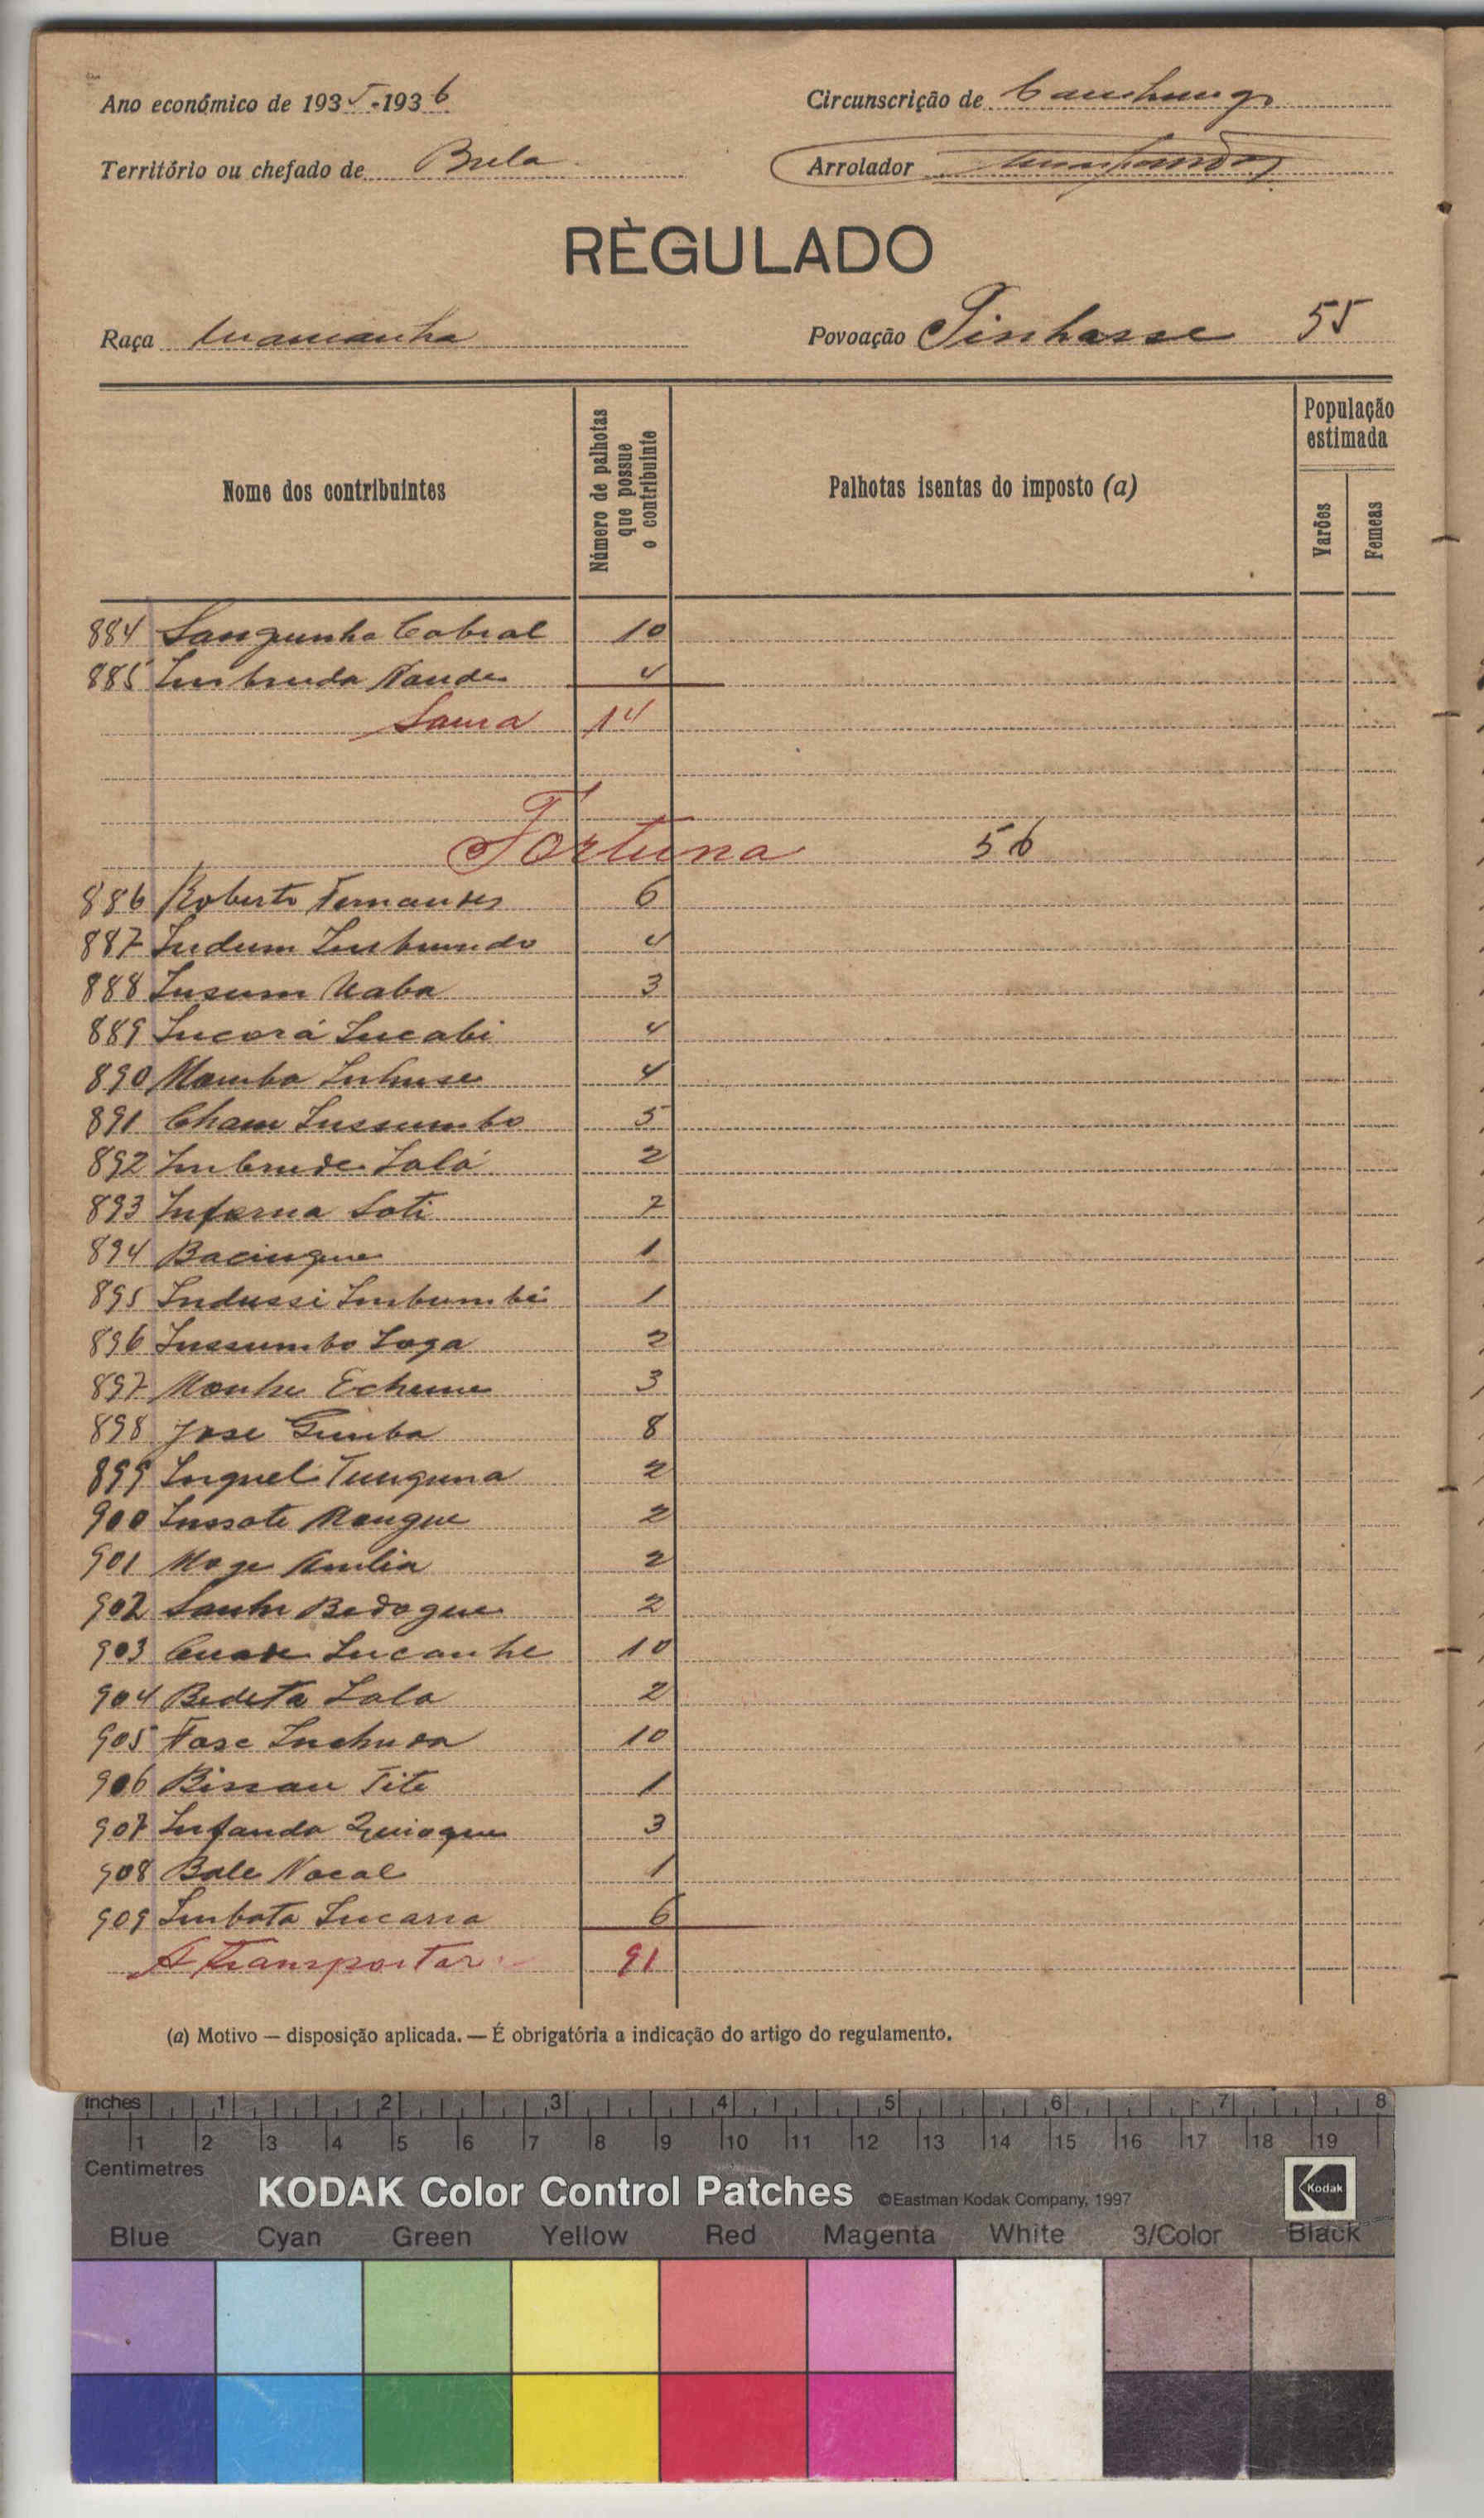 Ano económico de 1935-1936
Circunscrição de Canchungo
Território ou chefado de Brela
Arrolador
RÈGULADO
Raça Mamanha
Povoação Tinhasse 55
Nome dos contribuintes
Número de palhotas que possue o contribuinte
Palhotas isentas do imposto (a)
População estimada
Varões
Femeas
884 Sangunho Cabral 10
885 Imbunda Nande 4
Soma 14
Fortuna 56
886 Roberto Fernandes 6
887 Indum Imbundo 4
888 Insumm Uaba 3
889 Incorá Incabi 4
890 Mamba Inhuse 4
891 Cham Inssumbo 5
892 Imbunde Lalá 2
893 Inforna Soti 7
894 Bacingue 1
895 Indussi Imbumbé 1
896 Inssumbo Loga 2
897 Monhe Echeme 3
898 Jose Gumba 8
899 Inquel Tunguna 2
900 Inssate Mangue 2
901 Moge Amilia 2
902 Sanhe Bedogue 2
903 Cuade Incanhe 10
904 Bedeta Lala 2
905 Fase Inchuda 10
906 Bissau Tite 1
907 Infanda Quiogue 3
908 Bale Nacal 1
909 Imbata Incassa 6
A transportar 91
(a) Motivo — disposição aplicada. — É obrigatória a indicação do artigo do regulamento.
inches 1 2 3 4 5 6 7 8
1 2 3 4 5 6 7 8 9 10 11 12 13 14 15 16 17 18 19
Centimetres
KODAK Color Control Patches ©Eastman Kodak Company, 1997 Kodak
Blue Cyan Green Yellow Red Magenta White 3/Color Black